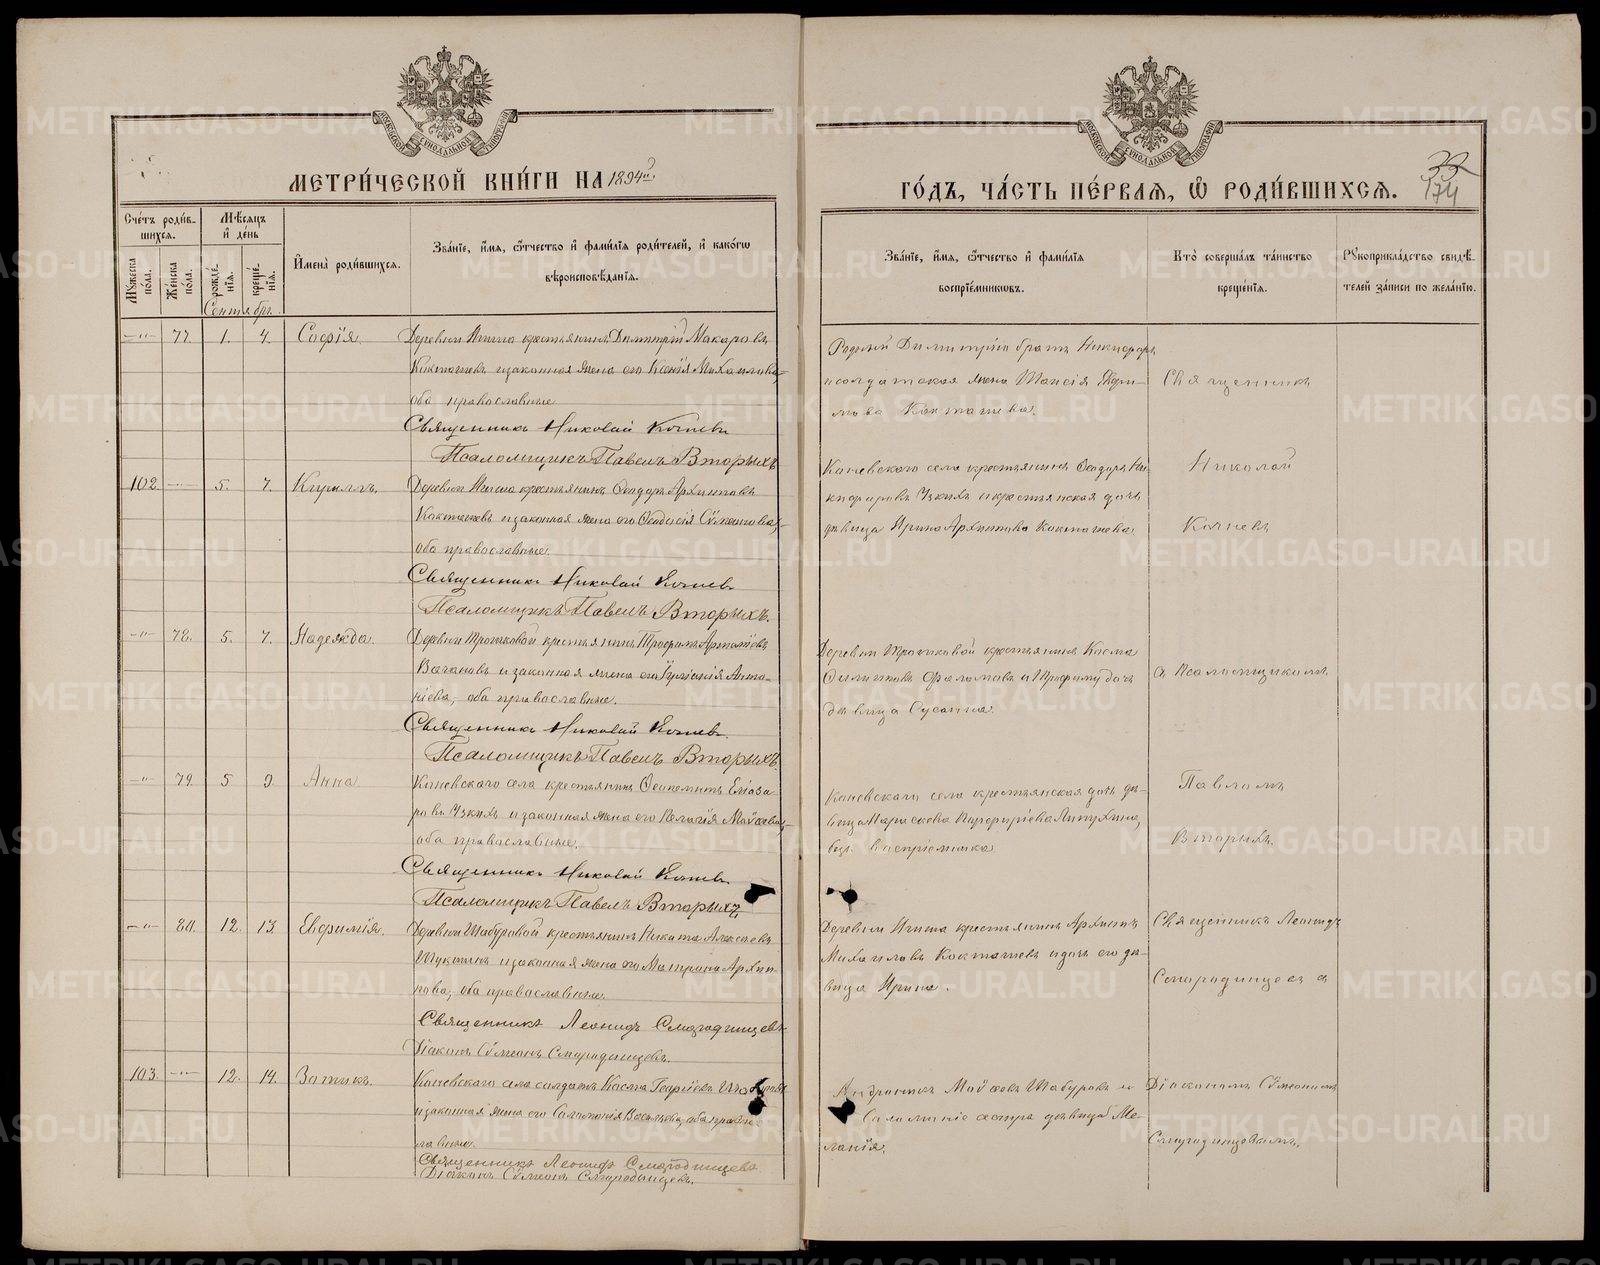 МЕТРИ́ЧЕСКОЙ КНИ́ГИ НА 1894й
ГО́ДЪ, ЧА́СТЬ ПЕ́РВАЯ, Ѡ҆ РОДИ́ВШИХСЯ.
33
174
Сче́тъ роди́в-
шихся.
Му́жеска по́ла.
Же́нска по́ла.
Мѣ́сяцъ и҆ де́нь
рожде́нїя.
креще́нїя.
И҆мена̀ роди́вшихся.
Зва́нїе, и҆́мя, ѻ҆́тчество и҆ фами́лїя роди́телей, и҆ како́гѡ
вѣроисповѣ́данїя.
Зва́нїе, и҆́мя, ѻ҆́тчество и҆ фами́лїя
воспрїе́мникѡвъ.
Кто̀ соверша́лъ та́инство
креще́нїя.
Рꙋкоприкла́дство свидѣ́-
телей за́писи по жела́нїю.
Сентябрь
—"— 77. 1. 4. Софія.
Деревни Ипиша крестьянинъ Димитрій Макаровъ
Кокташевъ и законная жена его Ксенія Михаилова,
оба православные
Священникъ Николай Кочневъ
Псаломщикъ Павелъ Вторыхъ
Родной Димитрію братъ Никифоръ
и солдатская жена Таисія
Кокташева.
Священникъ
Николай
Кочневъ
102. —"— 5. 7. Кириллъ.
Деревни Ипиша крестьянинъ Ѳеодоръ Архиповъ
Кокташевъ и законная жена его Ѳеодосія Сѵмеонова,
оба православные.
Священникъ Николай Кочневъ
Псаломщикъ Павелъ Вторыхъ.
Каневского села крестьянинъ Ѳеодоръ Ни-
кифоровъ Узкихъ и крестьянская дочь
дѣвица Ирина Архипова Кокташева
—"— 78. 5. 7. Надежда.
Деревни крестьянинъ Трофимъ
и законная жена его Анто-
ніева, оба православные.
Священникъ Николай Кочневъ.
Псаломщикъ Павелъ Вторыхъ.
Деревни крестьянинъ Косма
и Трофиму дочь
дѣвица Сусанна.
съ Псаломщикомъ
Павломъ
Вторыхъ.
—"— 79. 5 9. Анна
Каневскаго села крестьянинъ Елеаза-
ровъ Узкихъ и законная жена его Пелагія Моѵсеева,
оба православные.
Священникъ Николай Кочневъ
Псаломщикъ Павелъ Вторыхъ
Каневскаго села крестьянская дочь дѣ-
вица Порфиріева
безъ воспріемника
—"— 80. 12. 13 Евфимія.
Деревни Шабуровой крестьянинъ Никита Алексѣевъ
и законная жена его Матрона Архи-
пова, оба православные.
Священникъ Леонидъ Смородинцевъ
Діаконъ Сѵмеонъ Смородинцевъ.
Деревни Ипиша крестьянинъ Архипъ
Михаиловъ Кокташевъ и дочь его дѣ-
вица Ирина.
Священникъ Леонидъ
Смородинцевъ съ
Діакономъ Сѵмеономъ
Смородинцовымъ.
103. —"— 12. 14. Зотикъ.
Каневскаго села солдатъ Косма Георгіевъ
и законная жена его Соломонія Васильева, оба право-
славные.
Священникъ Леонидъ Смородинцевъ
Діаконъ Сѵмеонъ Смородинцевъ.
Андроникъ Моѵсеевъ Шабуровъ и
Соломоніи сестра дѣвица Ме-
ланія.
METRIKI.GASO-URAL.RU